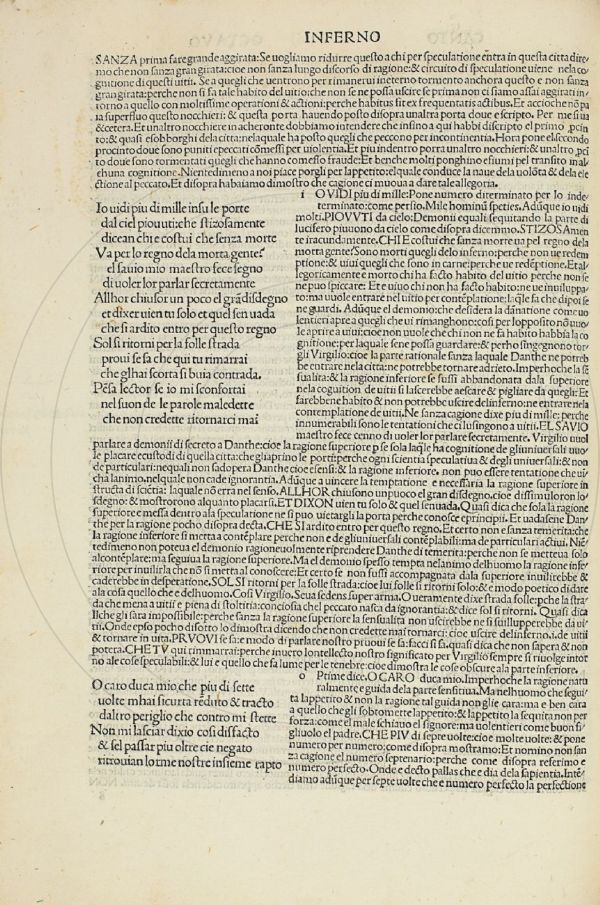 INFERNO
SANZA prima fare grande aggirata: Se uogliamo ridurre questo a chi per speculatione entra in questa citta dire
mo che non sanza gran girata: cioe non sanza lungo discorso di ragione: & circuito di speculatione uiene nela co
gnitione di questi uitii. Se a quegli che uentrono per rimanerui ineterno tormento anchora questo e non sanza
gran girata: perche non si fa tale habito del uitio: che non se ne possa uscire se prima non ci siamo assai aggirati in
torno a quello con moltissime operationi & actioni: perche habitus fit ex frequentatis actibus. Et accioche nō pa
ia superfluo questo nocchieri: & questa porta hauendo posto disopra unaltra porta doue e scripto. Per me si ua
&cetera. Et unaltro nocchiere in acheronte dobbiamo intendere che infino a qui habbi discripto el primo
to: & quasi esobborghi dela citta: nelaquale ha posto quegli che peccono per incontinentia. Hora pone elsecondo
procinto doue sono puniti epeccati cōmessi per uiolentia. Et piu indentro porra unaltro nocchieri: & unaltro pci
to doue sono tormentati quegli che hanno comesso fraude: Et benche molti ponghino esiumi pel transito mal
ehuna cognitione. Nientedimeno a noi piace porgli per lappetito: elquale conduce la naue dela uolōta & dela ele
ctione al peccato. Et disopra habiamo dimostro che cagione ci muoua a dare tale allegoria.
Io uidi piu di mille insu le porte
dal ciel piouuti: che stizosamente
dicean chi e costui che senza morte
Va per lo regno dela morta gente?
el sauio mio maestro fece segno
di uoler lor parlar secretamente
Allhor chiuson un poco el grā disdegno
et dixer uien tu solo et quel sen uada
che si ardito entro per questo regno
Sol si ritorni per la folle strada
proui se sa che qui tu rimarrai
che glhai scorta si buia contrada.
Pēsa lector se io mi sconfortai
nel suon de le parole maledette
che non credette ritornarci mai
i OVIDI piu di mille: Pone numero diterminato per lo inde
terminato: come persio. Mile hominū speties. Adūque io uidi
molti. PIOVVTI da cielo: Demonii equali sequitando la parte di
lucifero piuuono da cielo come disopra dicemmo. STIZOSAmen
te iracundamente. CHI E costui che sanza morte ua pel regno dela
morta gente? Sono morti quegli delo inferno: perche non ue redem
ptione: & uiui quegli che sono in carne: perche ue redēptione. Et al
legoricamente e morto chi ha facto habito del uitio perche non se
ne puo spiccare: Et e uiuo chi non ha facto habito: ne ue inuiluppa
to: ma uuole entrare nel uitio per contēplatione: laqle fa che dipoi se
ne guardi. Adūque el demonio: che desidera la dānatione come uo
lentieri apre a quegli che ui rimanghono: cosi per lopposito nō uuo
le aprire a uiui: cioe non uuole che chi non ne fa habito habbia la co
gnitione: per laquale sene possa guardare: & perho singegnono tor
gli Virgilio: cioe la parte rationale sanza laquale Danthe ne potreb
be entrare nela citta: ne potrebbe tornare adrieto. Imperhoche la se
sualita: & la ragione inferiore se fussi abbandonata dala superiore
nela cognitione de uitii si lascerebbe aescare & pigliare da quegli: Et
farebbene habito & non potrebbe uscire delinferno: ne entrare nela
contemplatione de uitii. Ne sanza cagione dixe piu di mille: perche
innumerabili sono le tentationi che ci lusingono a uitii. EL SAVIO
maestro fece cenno di uoler lor parlare secretamente. Virgilio uuol
parlare a demonii di secreto a Danthe: cioe la ragione superiore p se sola laqle ha cognitione de gliuniuersali uuo
le placare ecustodi di quella citta: che gliaprino le porti: perche ogni scientia speculatiua & degli uniuersali: & non
de particulari: nequali non sadopera Danthe cioe esensi: & la ragione inferiore. non puo essere tentatione che ui
cha lanimo. nelquale non cade ignorantia. Adūque a uincere la temptatione e necessaria la ragione superiore in
structa di sciētia: laquale nō erra nel senso. ALLHOR chiusono un poco el gran disdegno. cioe dissimuloron lo
sdegno: & mostrorono alquanto placarsi. ET DIXON uien tu solo & quel sen uada. Quasi dica che sola la ragione
superiore e messa dentro ala speculatione ne si puo uietargli la porta perche conosce eprincipii. Et uadasene Dan
the per la ragione pocho disopra decta. CHE SI ardito entro per questo regno. Et certo non e sanza temerita: che
la ragione inferiore si metta a contēplare perche non e de gliuniuersali contēplabili: ma de particulari actiui. Niē
tedimeno non poteua el demonio ragioneuolmente riprendere Danthe di temerita: perche non se metteua solo
alcontēplare: ma seguiua la ragione superiore. Ma el demonio spesso tempta nelanimo delhuomo la ragione infe
riore per inuilirla che nō si metta al conoscere: Et certo se non fussi accompagnata dala superiore inuilirebbe &
caderebbe in desperatione. SOL SI ritorni per la folle strada: cioe lui folle si ritorni solo: & e modo poetico di dare
ala cosa quello che e delhuomo. Cosi Virgilio. Seua sedens super arma. O ueramente dixe strada folle: pche la stra
da che mena a uitii e piena di stoltitia: conciosia chel peccato nasca da ignorantia: & dice sol si ritorni. Quasi dica
Ilche gli sara impossibile: perche sanza la ragione superiore la sensualita non uscirebbe ne si suilupperebbe da ui
tii. Onde epso pocho disotto lo dimostra dicendo che non credette mai tornarci: cioe uscire delinferno. i. de uitii
& tornare in uita. PRVOVI se sa: e modo di parlare nostro pruoui se sa: facci se sa. quasi dica che non sapera & non
potera. CHE TV qui rimmarrai: perche inuerita lo intellecto nostro significato per Virgilio sempre si riuolge intor
no ale cose speculabili: & lui e quello che fa lume per le tenebre: cioe dimostra le cose obscure ala parte inferiore.
O caro duca mio che piu di sette
uolte mhai sicurta rēduto & tracto
daltro periglio che contro mi stette
Non mi lasciar dixio cosi disfacto
& sel passar piu oltre cie negato
ritrouian lorme nostre insieme rapto
o Prime dice. O CARO duca mio. Imperhoche la ragione natu
ralmente e guida dela parte sensitiua. Ma nelhuomo che segui
ta lappetito & non la ragione tal guida non glie cara: ma e ben cara
a quello che gli sobtromette lappetito: & lappetito la sequita non per
forza: come el male schiauo el signore: ma uolentieri come buon fi
gliuolo el padre. CHE PIV di septe uolte: cioe molte uolte: & pone
numero per numero: come disopra mostramo: Et nomino non san
za cagione el numero septenario: perche come disopra referimo e
numero perfecto. Onde e decto pallas che e dia dela sapientia. Intē
diamo adūque per septe uolte che e numero perfecto la perfectione